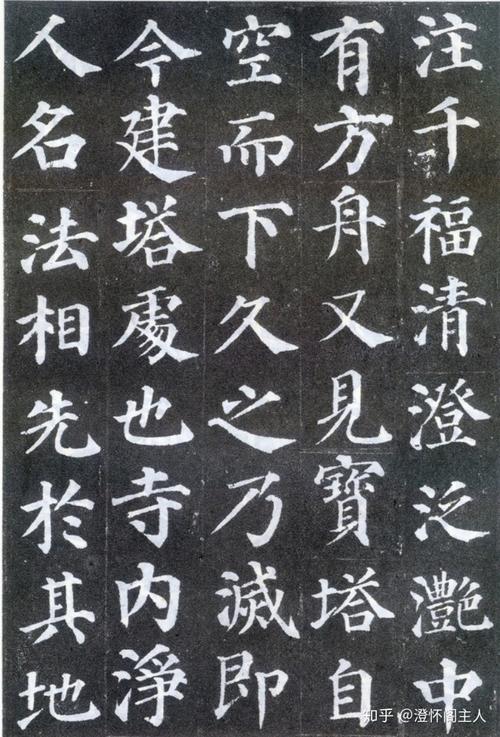 注千福清澄泛灔中
有方舟又見寶塔自
空而下久之乃滅即
今建塔處也寺内淨
人名法相先於其地
知乎 @澄怀阁主人